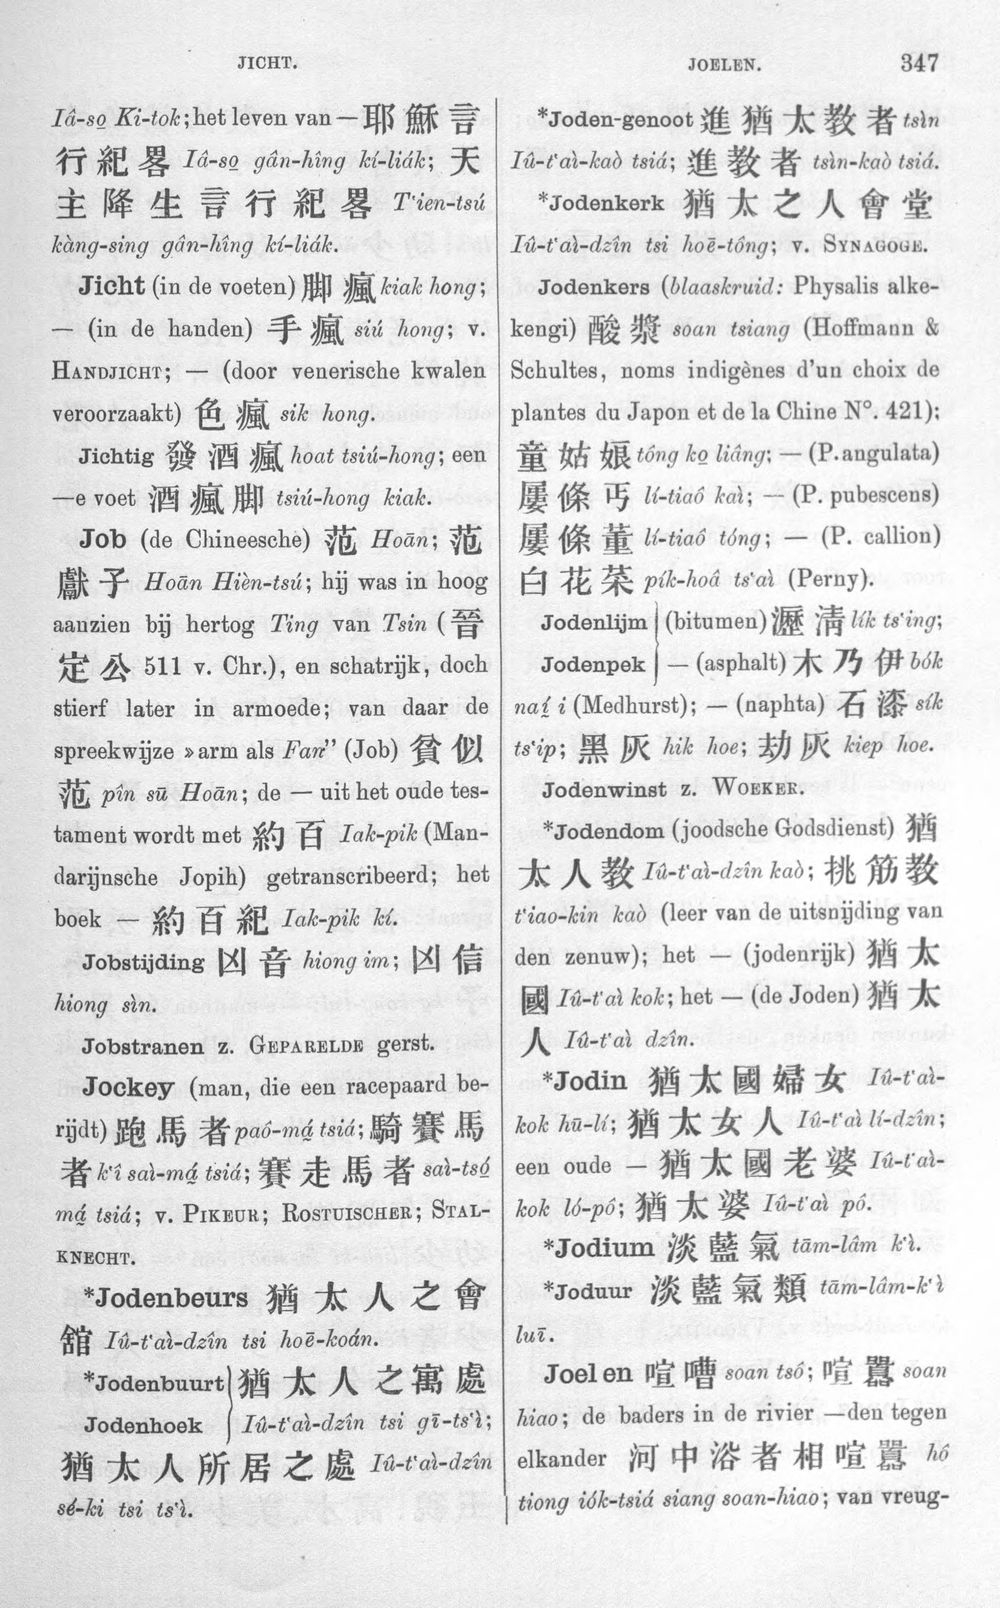 JICHT.
JOELEN.
347
Iâ-so̱ Ki-tok; het leven van — 耶穌言
行紀畧 Iâ-so̱ gân-hîng kí-liák; 天
主降生言行紀畧 T‘ien-tsú
kàng-sing gân-hîng kí-liák.
Jicht (in de voeten) 脚瘋 kiak hong;
— (in de handen) 手瘋 siú hong; v.
HANDJICHT; — (door venerische kwalen
veroorzaakt) 色瘋 sik hong.
Jichtig 發酒瘋 hoat tsiú-hong; een
—e voet 酒瘋脚 tsiú-hong kiak.
Job (de Chineesche) 范 Hoān; 范
獻子 Hoān Hièn-tsú; hij was in hoog
aanzien bij hertog Ting van Tsin (晉
定公 511 v. Chr.), en schatrijk, doch
stierf later in armoede; van daar de
spreekwijze »arm als Fan” (Job) 貧似
范 pîn sū Hoān; de — uit het oude tes-
tament wordt met 約百 Iak-pik (Man-
darijnsche Jopih) getranscribeerd; het
boek — 約百紀 Iak-pik kí.
Jobstijding 凶音 hiong im; 凶信
hiong sìn.
Jobstranen z. GEPARELDE gerst.
Jockey (man, die een racepaard be-
rijdt) 跑馬者 paó-má̱ tsiá; 騎賽馬
者 k‘î saì-má̱ tsiá; 賽走馬者 saì-tsó̱
má̱ tsiá; v. PIKEUR; ROSTUISCHER; STAL-
KNECHT.
*Jodenbeurs 猶太人之會
舘 Iû-t‘aì-dzîn tsi hoē-koán.
*Jodenbuurt 猶太人之寓處
Jodenhoek Iû-t‘aì-dzîn tsi gī-ts‘ì;
猶太人所居之處 Iû-t‘aì-dzîn
sé-ki tsi ts‘ì.
*Joden-genoot 進猶太教者 tsìn
Iû-t‘aì-kaò tsiá; 進教者 tsìn-kaò tsiá.
*Jodenkerk 猶太之人會堂
Iû-t‘aì-dzîn tsi hoē-tông; v. SYNAGOGE.
Jodenkers (blaaskruid: Physalis alke-
kengi) 酸漿 soan tsiang (Hoffmann &
Schultes, noms indigènes d’un choix de
plantes du Japon et de la Chine N°. 421);
童姑娘 tông ko̱ liâng; — (P. angulata)
屢條丐 lí-tiaô kaì; — (P. pubescens)
屢條董 lí-tiaô tóng; — (P. callion)
白花菜 pík-hoâ ts‘aì (Perny).
Jodenlijm (bitumen) 瀝清 lík ts‘ing;
Jodenpek — (asphalt) 木乃伊 bók
naí̱ i (Medhurst); — (naphta) 石漆 sík
ts‘ip; 黑灰 hik hoe; 劫灰 kiep hoe.
Jodenwinst z. WOEKER.
*Jodendom (joodsche Godsdienst) 猶
太人教 Iû-t‘aì-dzîn kaò; 挑筋教
t‘iao-kin kaò (leer van de uitsnijding van
den zenuw); het — (jodenrijk) 猶太
國 Iû-t‘aì kok; het — (de Joden) 猶太
人 Iû-t‘aì dzîn.
*Jodin 猶太國婦女 Iû-t‘aì-
kok hū-lí; 猶太女人 Iû-t‘aì lí-dzîn;
een oude — 猶太國老婆 Iû-t‘aì-
kok ló-pô; 猶太婆 Iû-t‘aì pô.
*Jodium 淡藍氣 tām-lâm k‘ì.
*Joduur 淡藍氣類 tām-lâm-k‘ì
luī.
Joelen 喧嘈 soan tsó; 喧囂 soan
hiao; de baders in de rivier —den tegen
elkander 河中浴者相喧囂 hô
tiong iók-tsiá siang soan-hiao; van vreug-